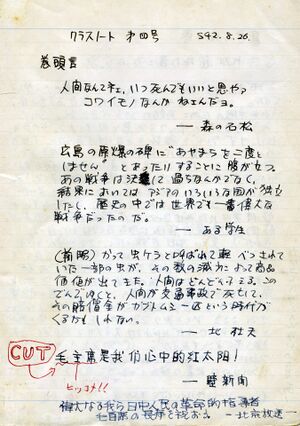 クラスノート 第四号 S42.8.26.
巻頭言
人間なんてネェ、いつ死んでもいいと思やァ
コワイモノなんか ねェんだョ。
— 森の石松
広島の原爆の碑に"あやまちを二度と
はせん" とあったりすることに腹が立つ。
あの戦争は決して過ちなんかでなく、
結果においては アジアのいろいろな国が独立
したし、歴史の中では世界でも一番偉大な
戦争だったのだ。
— ある学生
(前略) かつて虫ケラと呼ばれて軽べつされて
いた一部の虫が、その数の減少によって商品
価値が出てきた。人間はどんどんふえる。この
でんでいくと、人間が交通事故で死んでも、
その賠償金が
くるかもしれない。
— 北 杜夫
CUT
毛主席是我们心中的红太阳!
— 壁新聞
ヒッコメ!!
偉大なる我ら日中人民の革命的指導者
毛主席の長寿を祝おう。 —北京放送—